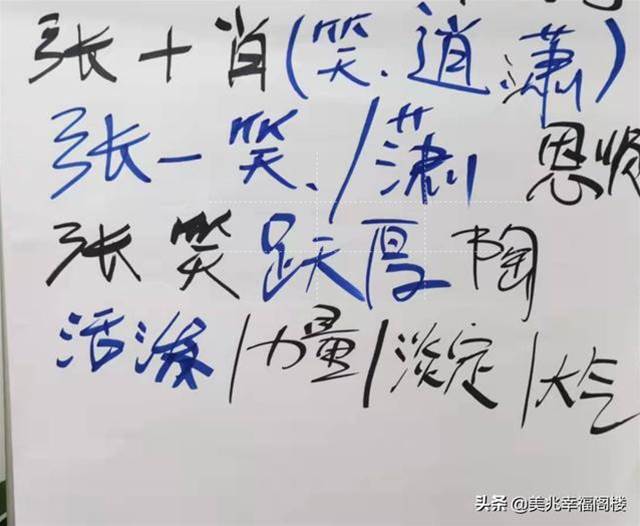 张十肖(笑、道、潇)
张一笑、/潇 恩
张笑跃厚陶
活泼/力量/淡定/大气
头条@美兆幸福阁楼